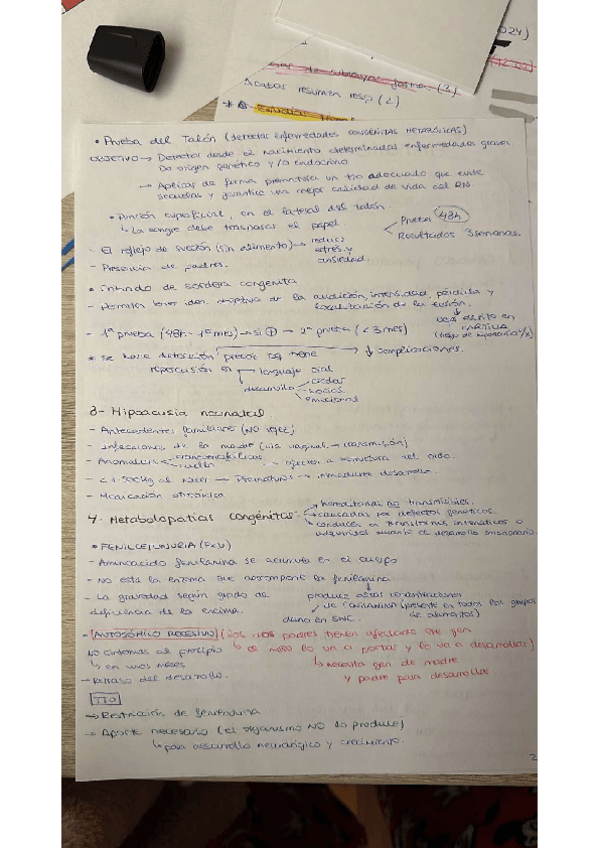 024)
Acabar resumen resp (2)
• Prueba del Talón (detectar enfermedades CONGÉNITAS METABÓLICAS)
OBJETIVO → Detectar desde el nacimiento determinadas enfermedades graves
De origen genético y/o endocrino
→ Aplicar de forma prematura un tto adecuado que evite
secuelas y garantice una mejor calidad de vida del RN.
• Punción superficial, en el lateral del talón.
↳ La sangre debe traspasar el papel.
Prueba 48h
Resultados 3 semanas.
- El reflejo de succión (sin alimento) → reduce
estrés y
ansiedad.
- Presencia de padres.
• Cribado de sordera congénita
- Permite tener iden. de la audición, intensidad, pérdida y
focalización de la lesión.
- 1ª prueba (48h - 1º mes) → si ⊕ → 2ª prueba (< 3 mes)
* Se hace detección precoz xq tiene ↓ complicaciones.
repercusión en → lenguaje oral
desarrollo
social
emocional
3- Hipoacusia neonatal
- Antecedentes familiares
- Infecciones de la madre (vía vaginal → transmisión)
- Anomalías craneofaciales
cuello
al nacer → Prematuros → inmadurez desarrollo.
- Medicación ototóxica
4- Metabolopatías congénitas
→ hereditarias no transmisibles.
→ causadas por defectos genéticos.
• FENILCETONURIA (FKU)
- Aminoácido fenilanina se acumula en el cuerpo
- NO está la enzima que descompone la fenilanina
- La gravedad según grado de
deficiencia de la enzima.
produce altas concentraciones
(presente en todos los grupos
de alimentos)
daño en SNC.
- AUTOSÓMICO RECESIVO (los dos padres tienen afectado ese gen
↳ el niño lo va a portar y lo va a desarrollar)
↳ necesita gen de madre
y padre para desarrollar
NO síntomas al principio
↳ en unos meses
- Retraso del desarrollo.
TTO
→ Restricción de fenilanina
→ Aporte necesario (el organismo NO lo produce)
↳ para desarrollo neurológico y crecimiento.
2